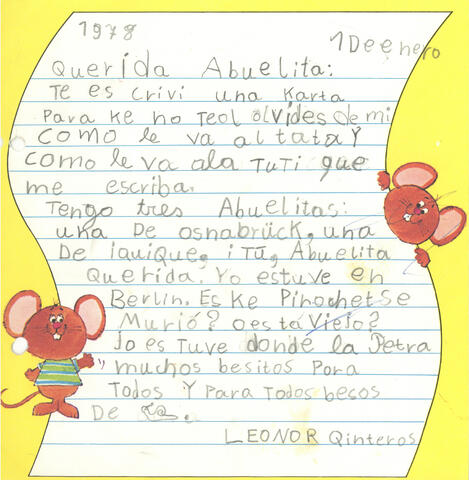 1978
1 De enero
Querida Abuelita:
Te escrivi una Karta
Para Ke no Teol olvides de mi
Como le va al tata Y
Como le va ala TuTi que
me escriba.
Tengo tres Abuelitas:
una De osnabrück, una
De iquique, i Tú, Abuelita
Querida. Yo estuve en
Berlin. Es Ke Pinochet se
Murió? o está Viejo?
Jo es Tuve donde la Petra
muchos besitos Para
Todos Y Para Todos besos
De
LEONOR Qinteros